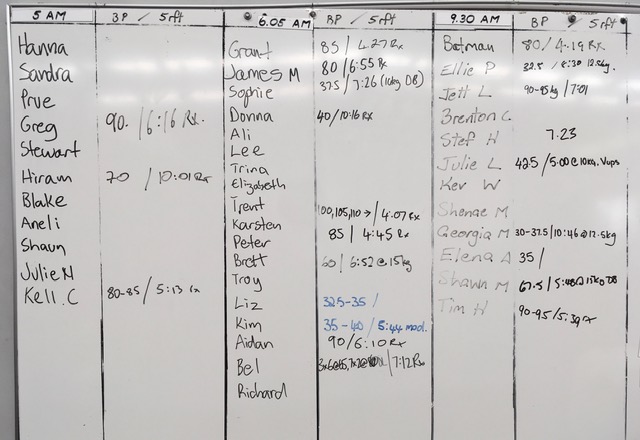 5 AM BP / 5rft
Hanna
Sandra
Prue
Greg 90. / 6:16 Rx.
Stewart
Hiram 70 / 10:01 Rx
Blake
Aneli
Shaun
Julie N
Kell.C 80-85 / 5:13 rx
6.05 AM BP / 5rft
Grant 85 / 4.27 Rx
James M 80 / 6:55 Rx
Sophie 37.5 / 7:26 (10kg DB)
Donna 40/10:16 Rx
Ali
Lee
Trina
Elizabeth
Trent 100,105,110 → / 4:07 Rx
Karsten 85 / 4:45 Rx
Peter
Brett 60 / 6:52 @ 15kg
Troy
Liz 32.5-35 /
Kim 35-40 / 5:44 mod.
Aidan 90/6:10 Rx
Bel /7:12 Rx
Richard
9.30 AM BP / 5rft
Batman 80/4.19 Rx
Ellie P 32.5 / 12.5kg.
Jett L 90-95kg / 7:01
Brenton C.
Stef H 7.23
Julie L 42.5 / 5:00 @ 10kg. Vups
Kev W
Shenae M
Georgia M 30-37.5/10:46 @ 12.5kg
Elena A 35/
Shawn M 67.5 / DB
Tim H 90-95/5:39 rx